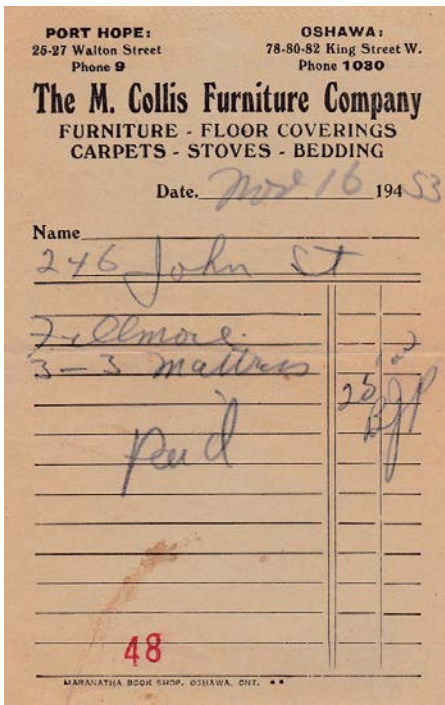 PORT HOPE: OSHAWA:
25-27 Walton Street 78-80-82 King Street W.
Phone 9 Phone 1080
The M. Collis Furniture Company
FURNITURE - FLOOR COVERINGS
CARPETS - STOVES - BEDDING
Date. Nov 16 194 53
Name
246 John St
3-3 Mattress
25
Paid
48
MARANATHA BOOK SHOP, OSHAWA, ONT.